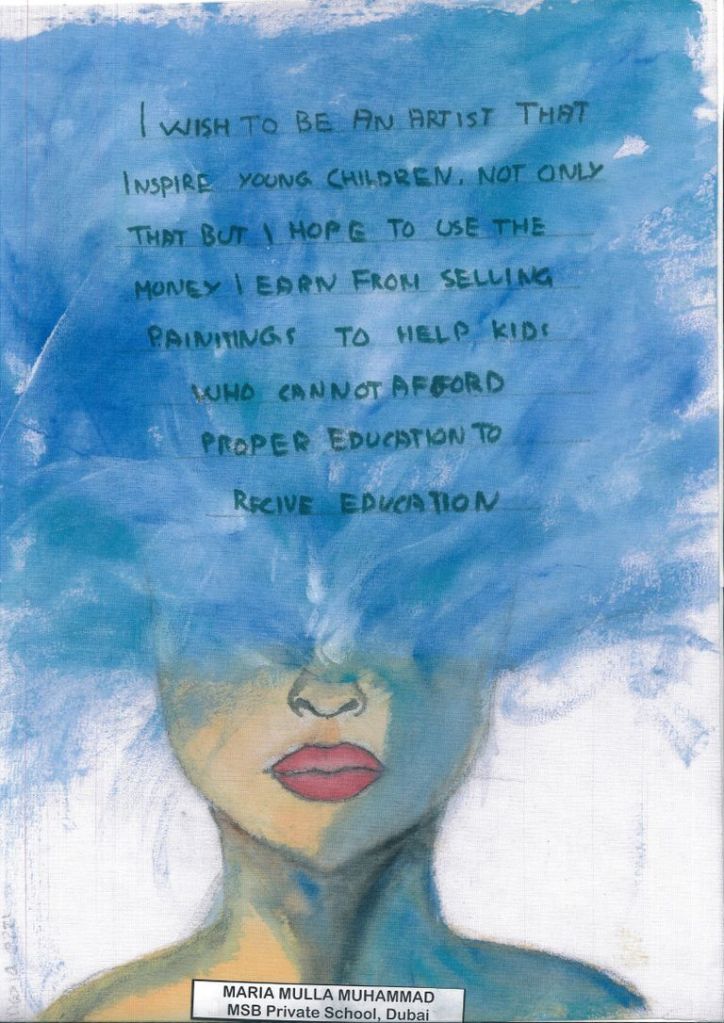 I WISH TO BE AN ARTIST THAT
INSPIRE YOUNG CHILDREN. NOT ONLY
THAT BUT I HOPE TO USE THE
MONEY I EARN FROM SELLING
PAINTINGS TO HELP KIDS
WHO CANNOT AFFORD
PROPER EDUCATION TO
RECIVE EDUCATION
MARIA MULLA MUHAMMAD
MSB Private School, Dubai